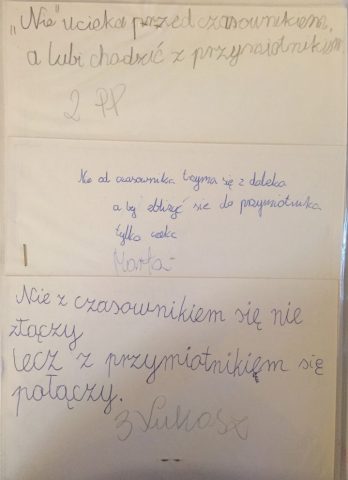 „Nie” ucieka przed czasownikiem,
a lubi chodzić z przymiotnikiem.
2 PP
Nie od czasownika trzyma się z daleka
a by zbliżyć się do przymiotnika
tylko czeka
Marta
Nie z czasownikiem się nie
złączy
lecz z przymiotnikiem się
połączy.
3 Łukasz